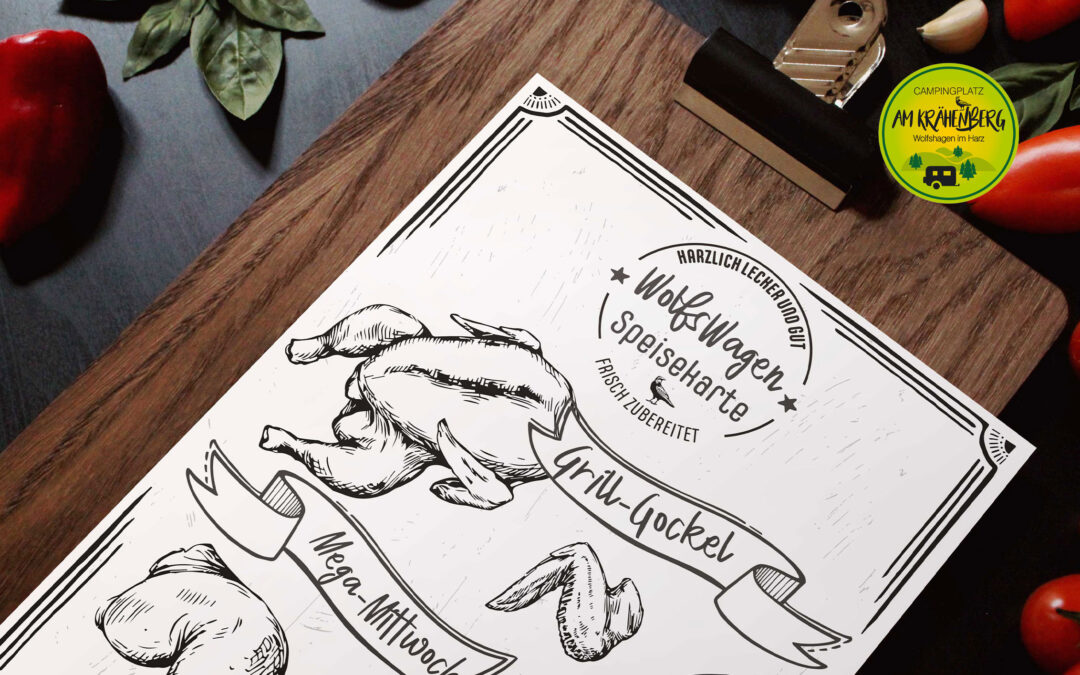 CAMPINGPLATZ
AM KRÄHENBERG
Wolfshagen im Harz
HARZLICH LECKER UND GUT
WolfsWagen
Speisekarte
FRISCH ZUBEREITET
Grill-Gockel
Mega-Mittwoch